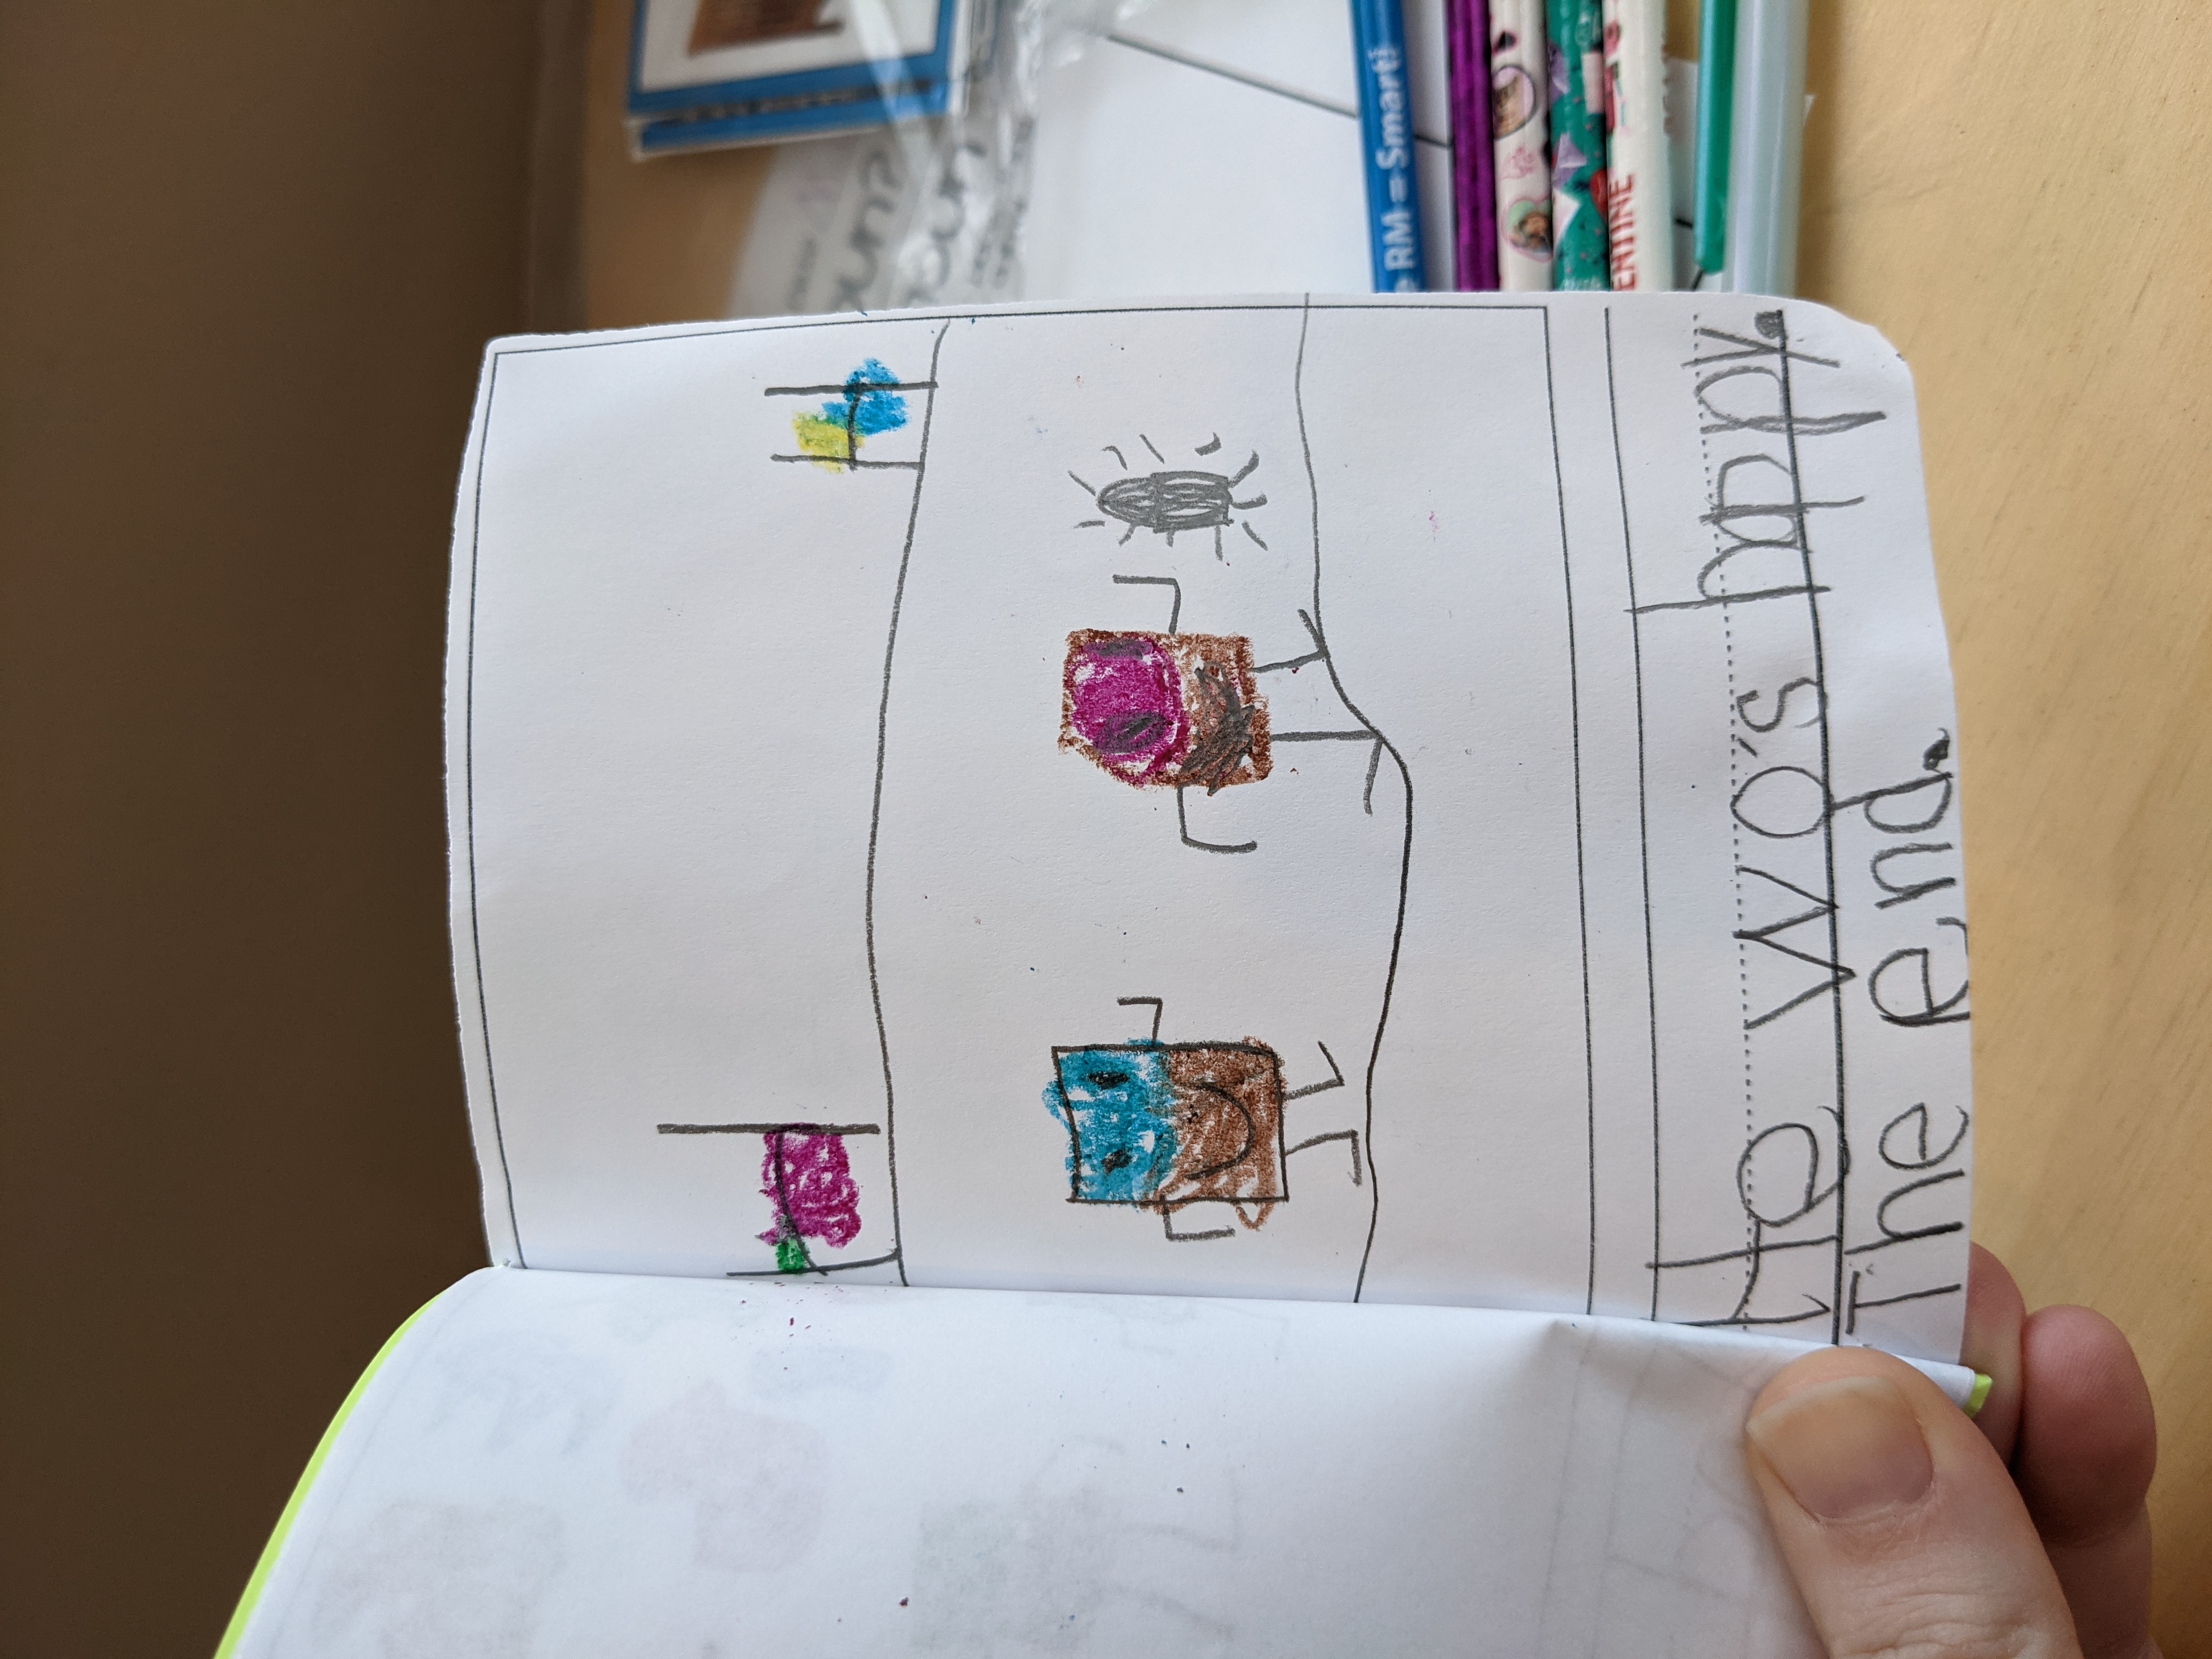 He wo's happy.
The end.
e RM = Smart!
ENTINE